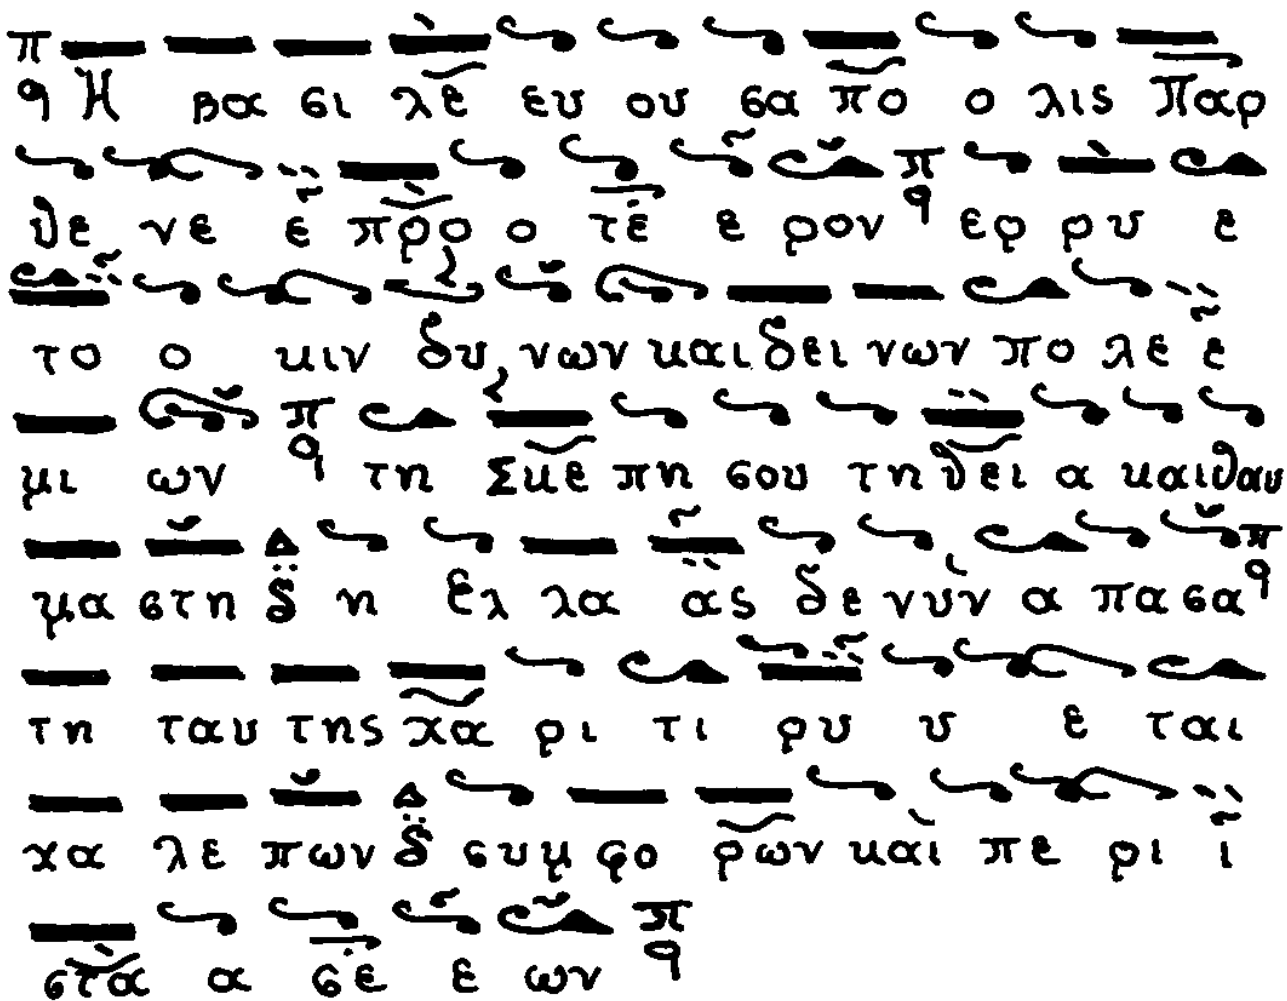 π
q Η βα σι λε ευ ου σα πο ο λις Παρ
θε νε ε προ ο τε ε ρον π q ερ ρυ ε
το ο κιν δυ νων και δει νων πο λε ε
μι ων π q τη Σκε πη σου τη θει α και θαυ
μα στη Δ δ η Ελ λα ας δε νυν α πα σα π q
τη ταυ της χα ρι τι ρυ υ ε ται
χα λε πων Δ δ συμ φο ρων και πε ρι ι
στα α σε ε ων π q